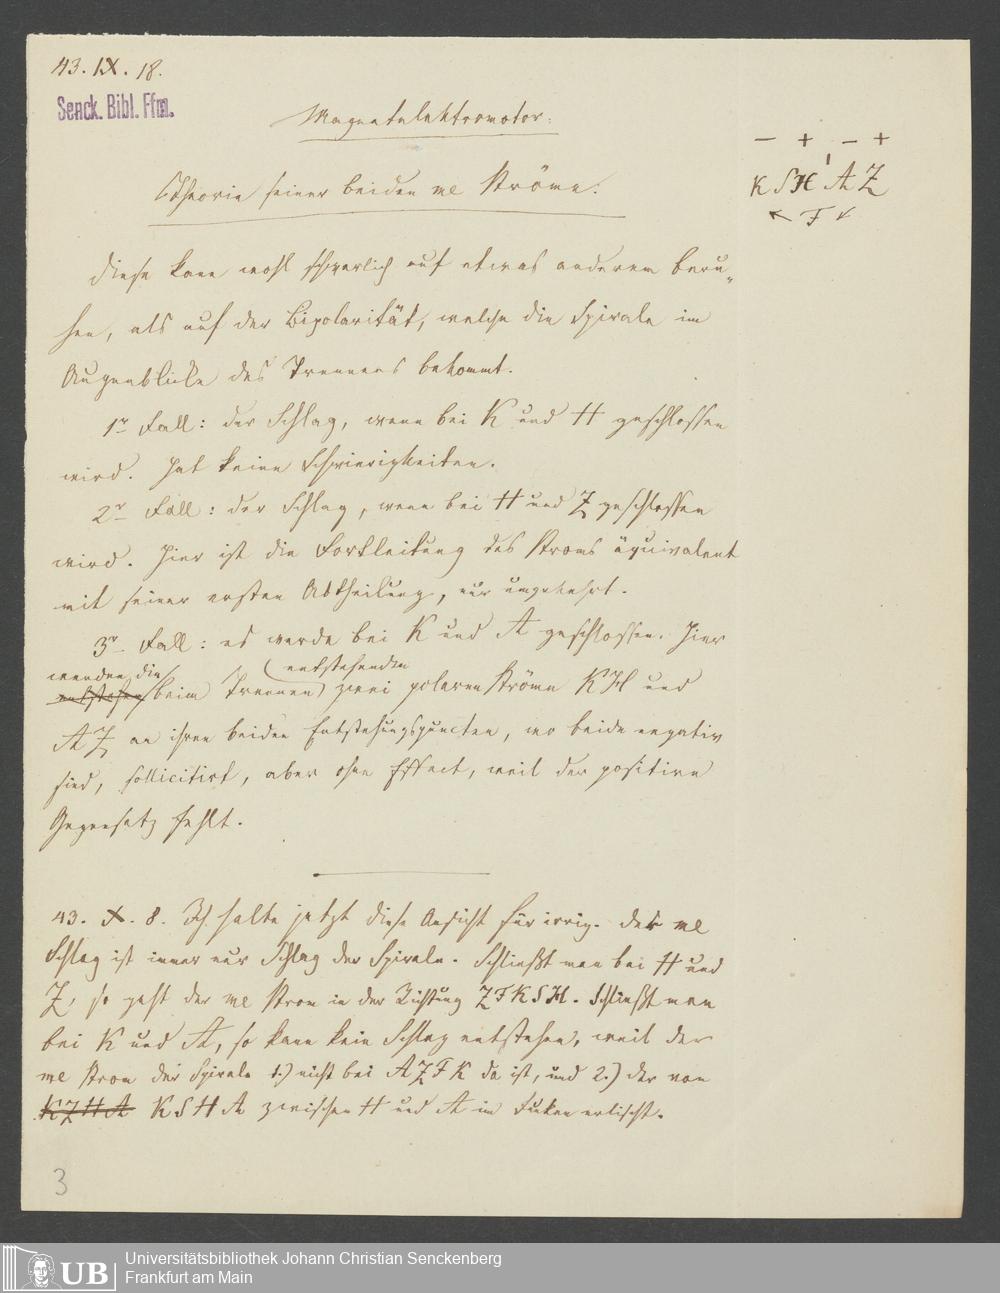 43. IX. 18.
Senck. Bibl. Ffm.
Magnetelektromotor.
Theorie seiner beiden me Ströme.
− + − +
K S H A Z
F
Diese kann wohl schwerlich auf etwas anderem beru-
hen, als auf der Bipolarität, welche die Spirale im
Augenblicke des Trennens bekommt.
1r Fall: der Schlag, wenn bei K und H geschlossen
wird. Hat keine Schwierigkeiten.
2r Fall: der Schlag, wenn bei H und Z geschlossen
wird. Hier ist die Fortleitung des Stroms äquivalent
mit seiner ersten Abtheilung, nur umgekehrt.
3r Fall: es werde bei K und A geschlossen. Hier
werden die entstehenden
entstehen beim Trennen zwei polaren Ströme KH und
AZ an ihren beiden Entstehungspuncten, wo beide negativ
sind, sollicitirt, aber ohne Effect, weil der positive
Gegensatz fehlt.
43. X. 8. Ich halte jetzt diese Ansicht für irrig. Der me
Schlag ist immer nur Schlag der Spirale. Schließt man bei H und
Z, so geht der me Strom in der Richtung ZFKSH. Schließt man
bei K und A, so kann kein Schlag entstehen, weil der
me Strom der Spirale 1.) nicht bei AZFK da ist, und 2.) der von
KZHA KSHA zwischen H und A im Funken erlischt.
3
UB
Universitätsbibliothek Johann Christian Senckenberg
Frankfurt am Main